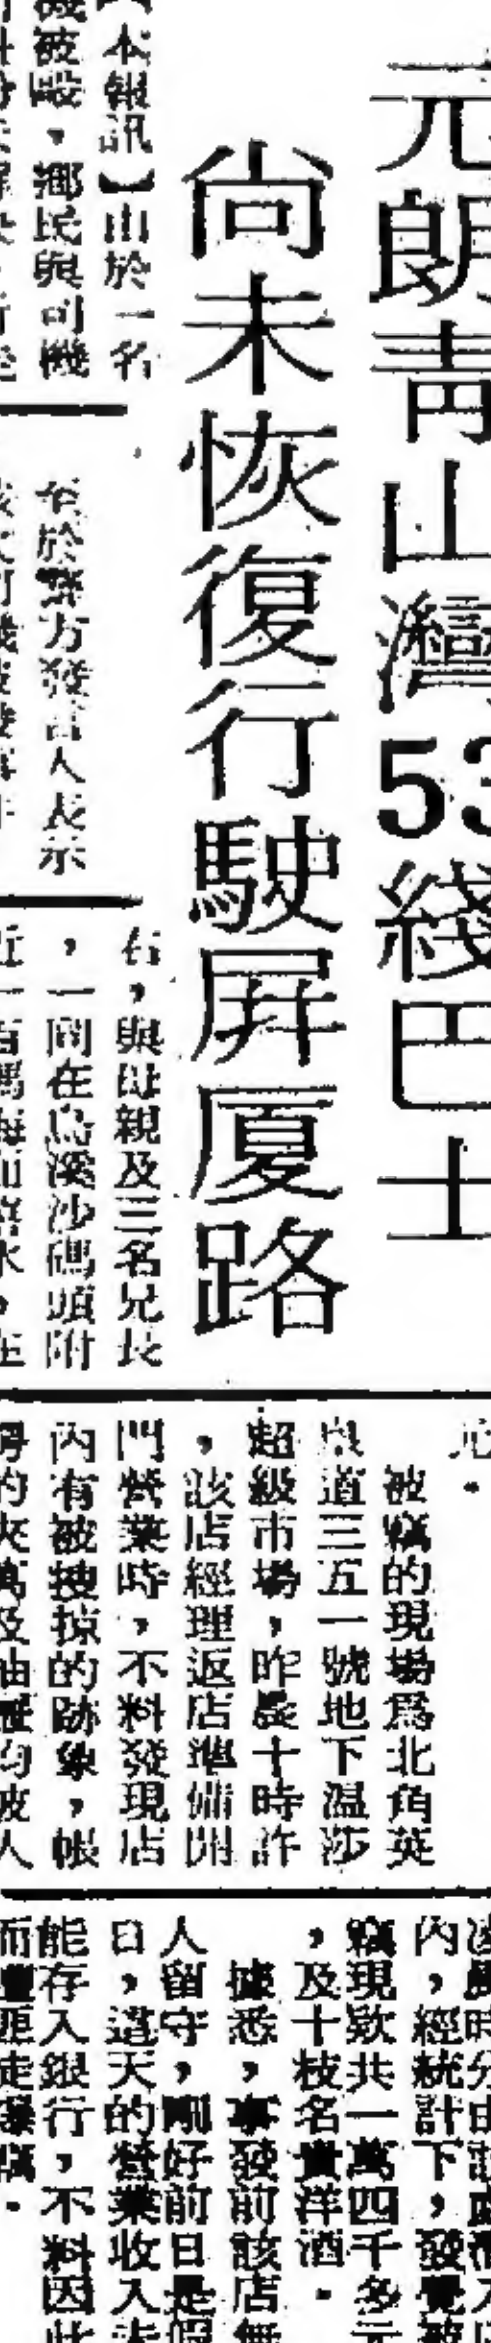 元朗青山灣53綫巴士
尚未恢復行駛屛厦路
【本報訊】由於一名
機被毆，鄉民與司機
至於警方發言人表示
右，與母親及三名兄長
，一同在烏溪沙碼頭附
元。
被竊的現塲爲北角英
皇道三五一號地下温莎
超級市塲，昨晨十時許
，該店經理返店準備開
門營業時，不料發現店
內有被搜掠的跡象，帳
的夾萬及油櫃均被人
內，經統計下，發覺被
竊現欵共一萬四千多元
，及十枝名貴洋酒。
據悉，事發前該店無
人留守，剛好前日是假
日，這天的營業收入未
能存入銀行，不料因此